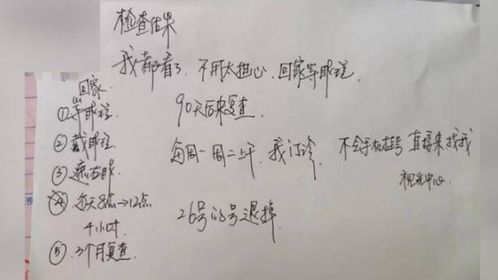 检查结果
我都看了,不用太担心,回家等眼镜.
90天后来复查.
每周一周二上午,我门诊.不会手机挂号 直接来找我
视光中心
26号的号退掉
回家
①等眼镜.
②戴眼镜.
③遮右眼
④每天8点→12点
4小时.
⑤.3个月复查